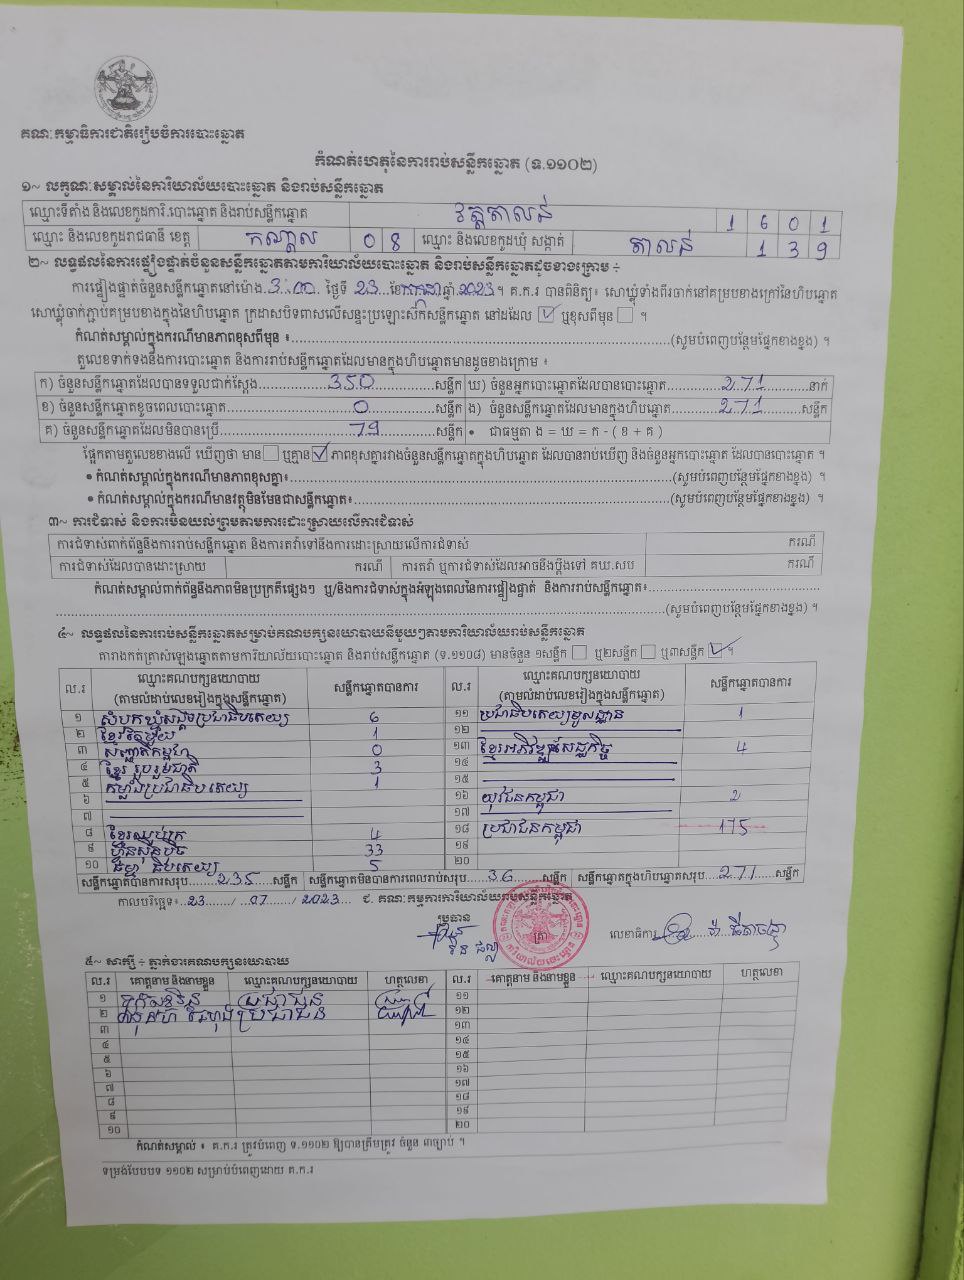 គណៈកម្មាធិការជាតិរៀបចំការបោះឆ្នោត
កំណត់ហេតុនៃការរាប់សន្លឹកឆ្នោត (ទ.១១០២)
១~ លក្ខណៈសម្គាល់នៃការិយាល័យបោះឆ្នោត និងរាប់សន្លឹកឆ្នោត
ឈ្មោះទីតាំង និងលេខកូដការិ.បោះឆ្នោត និងរាប់សន្លឹកឆ្នោត វត្តតាលន់ 1 6 0 1
ឈ្មោះ និងលេខកូដរាជធានី ខេត្ត កណ្តាល 0 8 ឈ្មោះ និងលេខកូដឃុំ សង្កាត់ តាលន់ 1 3 9
២~ លទ្ធផលនៃការផ្ទៀងផ្ទាត់ចំនួនសន្លឹកឆ្នោតតាមការិយាល័យបោះឆ្នោត និងរាប់សន្លឹកឆ្នោតដូចខាងក្រោម ÷
ការផ្ទៀងផ្ទាត់ចំនួនសន្លឹកឆ្នោតនៅម៉ោង 3:00 ថ្ងៃទី 23 ខែ កក្កដា ឆ្នាំ 2023 ។ គ.ក.រ បានពិនិត្យ៖ សោឃ្លុំទាំងពីរចាក់នៅគម្របខាងក្រៅនៃហិបឆ្នោត
សោឃ្លុំចាក់ភ្ជាប់គម្របខាងក្នុងនៃហិបឆ្នោត ក្រដាសបិទពាសលើសន្ទះប្រឡោះស៊ីកសន្លឹកឆ្នោត នៅដដែល ☑ ឬខុសពីមុន ☐ ។
កំណត់សម្គាល់ក្នុងករណីមានភាពខុសពីមុន ៖ (សូមបំពេញបន្ថែមផ្នែកខាងខ្នង) ។
តួលេខទាក់ទងនឹងការបោះឆ្នោត និងការរាប់សន្លឹកឆ្នោតដែលមានក្នុងហិបឆ្នោតមានដូចខាងក្រោម ៖
ក) ចំនួនសន្លឹកឆ្នោតដែលបានទទួលជាក់ស្តែង 350 សន្លឹក ឃ) ចំនួនអ្នកបោះឆ្នោតដែលបានបោះឆ្នោត 271 នាក់
ខ) ចំនួនសន្លឹកឆ្នោតខូចពេលបោះឆ្នោត 0 សន្លឹក ង) ចំនួនសន្លឹកឆ្នោតដែលមានក្នុងហិបឆ្នោត 271 សន្លឹក
គ) ចំនួនសន្លឹកឆ្នោតដែលមិនបានប្រើ 79 សន្លឹក • ជាធម្មតា ង = ឃ = ក - ( ខ + គ )
ផ្អែកតាមតួលេខខាងលើ ឃើញថា មាន ☐ ឬគ្មាន ☑ ភាពខុសគ្នារវាងចំនួនសន្លឹកឆ្នោតក្នុងហិបឆ្នោត ដែលបានរាប់ឃើញ និងចំនួនអ្នកបោះឆ្នោត ដែលបានបោះឆ្នោត ។
• កំណត់សម្គាល់ក្នុងករណីមានភាពខុសគ្នា៖ (សូមបំពេញបន្ថែមផ្នែកខាងខ្នង) ។
• កំណត់សម្គាល់ក្នុងករណីមានវត្ថុមិនមែនជាសន្លឹកឆ្នោត៖ (សូមបំពេញបន្ថែមផ្នែកខាងខ្នង) ។
៣~ ការជំទាស់ និងការមិនយល់ព្រមតាមការដោះស្រាយលើការជំទាស់
ការជំទាស់ពាក់ព័ន្ធនឹងការរាប់សន្លឹកឆ្នោត និងការតវ៉ាទៅនឹងការដោះស្រាយលើការជំទាស់ ករណី
ការជំទាស់ដែលបានដោះស្រាយ ករណី ការតវ៉ា ឬការជំទាស់ដែលអាចនឹងប្តឹងទៅ គឃ.សប ករណី
កំណត់សម្គាល់ពាក់ព័ន្ធនឹងភាពមិនប្រក្រតីផ្សេងៗ ឬ/និងការជំទាស់ក្នុងអំឡុងពេលនៃការផ្ទៀងផ្ទាត់ និងការរាប់សន្លឹកឆ្នោត៖
(សូមបំពេញបន្ថែមផ្នែកខាងខ្នង) ។
៤~ លទ្ធផលនៃការរាប់សន្លឹកឆ្នោតសម្រាប់គណបក្សនយោបាយនីមួយៗតាមការិយាល័យរាប់សន្លឹកឆ្នោត
តារាងកត់ត្រាសំឡេងឆ្នោតតាមការិយាល័យបោះឆ្នោត និងរាប់សន្លឹកឆ្នោត (ទ.១១០៨) មានចំនួន ១សន្លឹក ☐ ឬ២សន្លឹក ☐ ឬ៣សន្លឹក ☑ ។
ល.រ ឈ្មោះគណបក្សនយោបាយ (តាមលំដាប់លេខរៀងក្នុងសន្លឹកឆ្នោត) សន្លឹកឆ្នោតបានការ ល.រ ឈ្មោះគណបក្សនយោបាយ (តាមលំដាប់លេខរៀងក្នុងសន្លឹកឆ្នោត) សន្លឹកឆ្នោតបានការ
១ សំបុកឃ្មុំសង្គមប្រជាធិបតេយ្យ 6 ១១ ប្រជាធិបតេយ្យមូលដ្ឋាន 1
២ ខ្មែររួមរួម 1 ១២
៣ សញ្ជាតិកម្ពុជា 0 ១៣ ខ្មែរអភិវឌ្ឍន៍សេដ្ឋកិច្ច 4
៤ ខ្មែររួបរួមជាតិ 3 ១៤
៥ កម្លាំងប្រជាធិបតេយ្យ 1 ១៥
៦ ១៦ យុវជនកម្ពុជា 2
៧ ១៧
៨ ខ្មែរឈប់ក្រ 4 ១៨ ប្រជាជនកម្ពុជា 175
៩ ហ្វ៊ុនស៊ិនប៉ិច 33 ១៩
១០ ធម្មាធិបតេយ្យ 5 ២០
សន្លឹកឆ្នោតបានការសរុប 235 សន្លឹក សន្លឹកឆ្នោតមិនបានការពេលរាប់សរុប 36 សន្លឹក សន្លឹកឆ្នោតក្នុងហិបឆ្នោតសរុប 271 សន្លឹក
កាលបរិច្ឆេទ៖ 23 / 07 / 2023 ជ. គណៈកម្មការការិយាល័យរាប់សន្លឹកឆ្នោត
ប្រធាន លេខាធិការ
៥~ សាក្សី ÷ ភ្នាក់ងារគណបក្សនយោបាយ
ល.រ គោត្តនាម និងនាមខ្លួន ឈ្មោះគណបក្សនយោបាយ ហត្ថលេខា ល.រ គោត្តនាម និងនាមខ្លួន ឈ្មោះគណបក្សនយោបាយ ហត្ថលេខា
១ ប្រជាជន ១១
២ ប្រជាជន ១២
៣ ១៣
៤ ១៤
៥ ១៥
៦ ១៦
៧ ១៧
៨ ១៨
៩ ១៩
១០ ២០
កំណត់សម្គាល់ ៖ គ.ក.រ ត្រូវបំពេញ ទ.១១០២ ឱ្យបានត្រឹមត្រូវ ចំនួន ៣ច្បាប់ ។
ទម្រង់បែបបទ ១១០២ សម្រាប់បំពេញដោយ គ.ក.រ